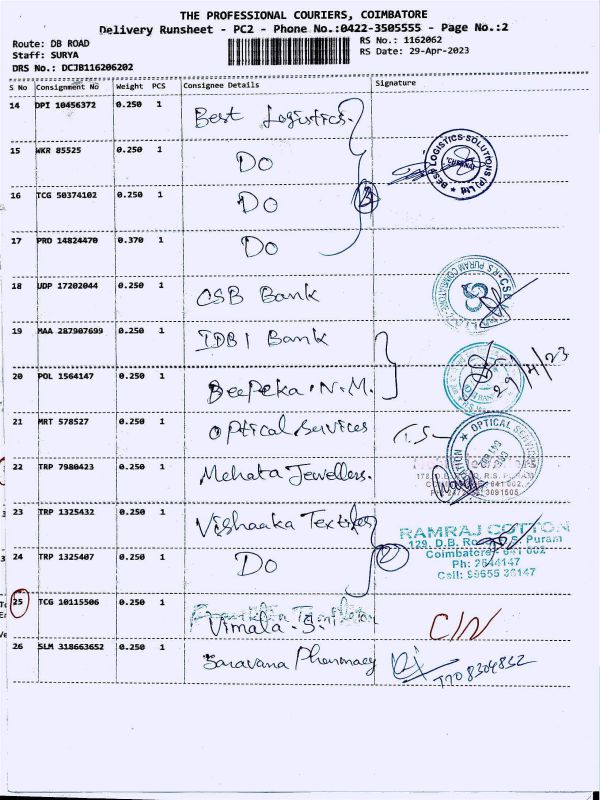 THE PROFESSIONAL COURIERS, COIMBATORE
Delivery Runsheet - PC2 - Phone No.:0422-3505555 - Page No.:2
Route: DB ROAD
RS No.: 1162062
Staff: SURYA
RS Date: 29-Apr-2023
DRS No.: DCJB116206202
S No Consignment No Weight PCS Consignee Details Signature
14 DPI 10456372 0.250 1 Best Logistics.
15 WKR 85525 0.250 1 Do
BEST LOGISTICS SOLUTIONS (P) LTD
CHENNAI
16 TCG 50374102 0.250 1 Do
3
17 PRD 14824470 0.370 1 Do
18 UDP 17202044 0.250 1 CSB Bank
19 MAA 287907699 0.250 1 IDBI Bank
29/4/23
20 POL 1564147 0.250 1 Deepeka.N.M.
21 MRT 578527 0.250 1 Optical Services T.S
OPTICAL SERVICE
22 TRP 7980423 0.250 1 Mehata Jewellers.
23 TRP 1325432 0.250 1 Vishaaka Textiles
RAMRAJ COTTON
129, D.B. Road, R.S. Puram
Coimbatore - 641 002
Ph: 2544147
24 TRP 1325407 0.250 1 Do
2
25 TCG 10115506 0.250 1 Vimala.S. C/N
26 SLM 318663652 0.250 1 Saravana Pharmacy
7708304832